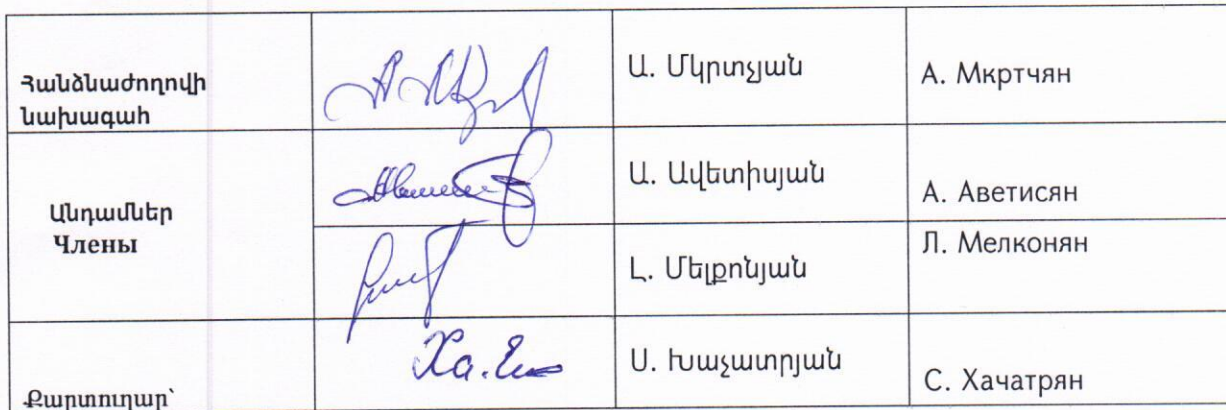 Հանձնաժողովի
նախագահ
Ա. Մկրտչյան
А. Мкртчян
Անդամներ
Члены
Ա. Ավետիսյան
А. Аветисян
Լ. Մելքոնյան
Л. Мелконян
Քարտուղար՝
Ս. Խաչատրյան
С. Хачатрян